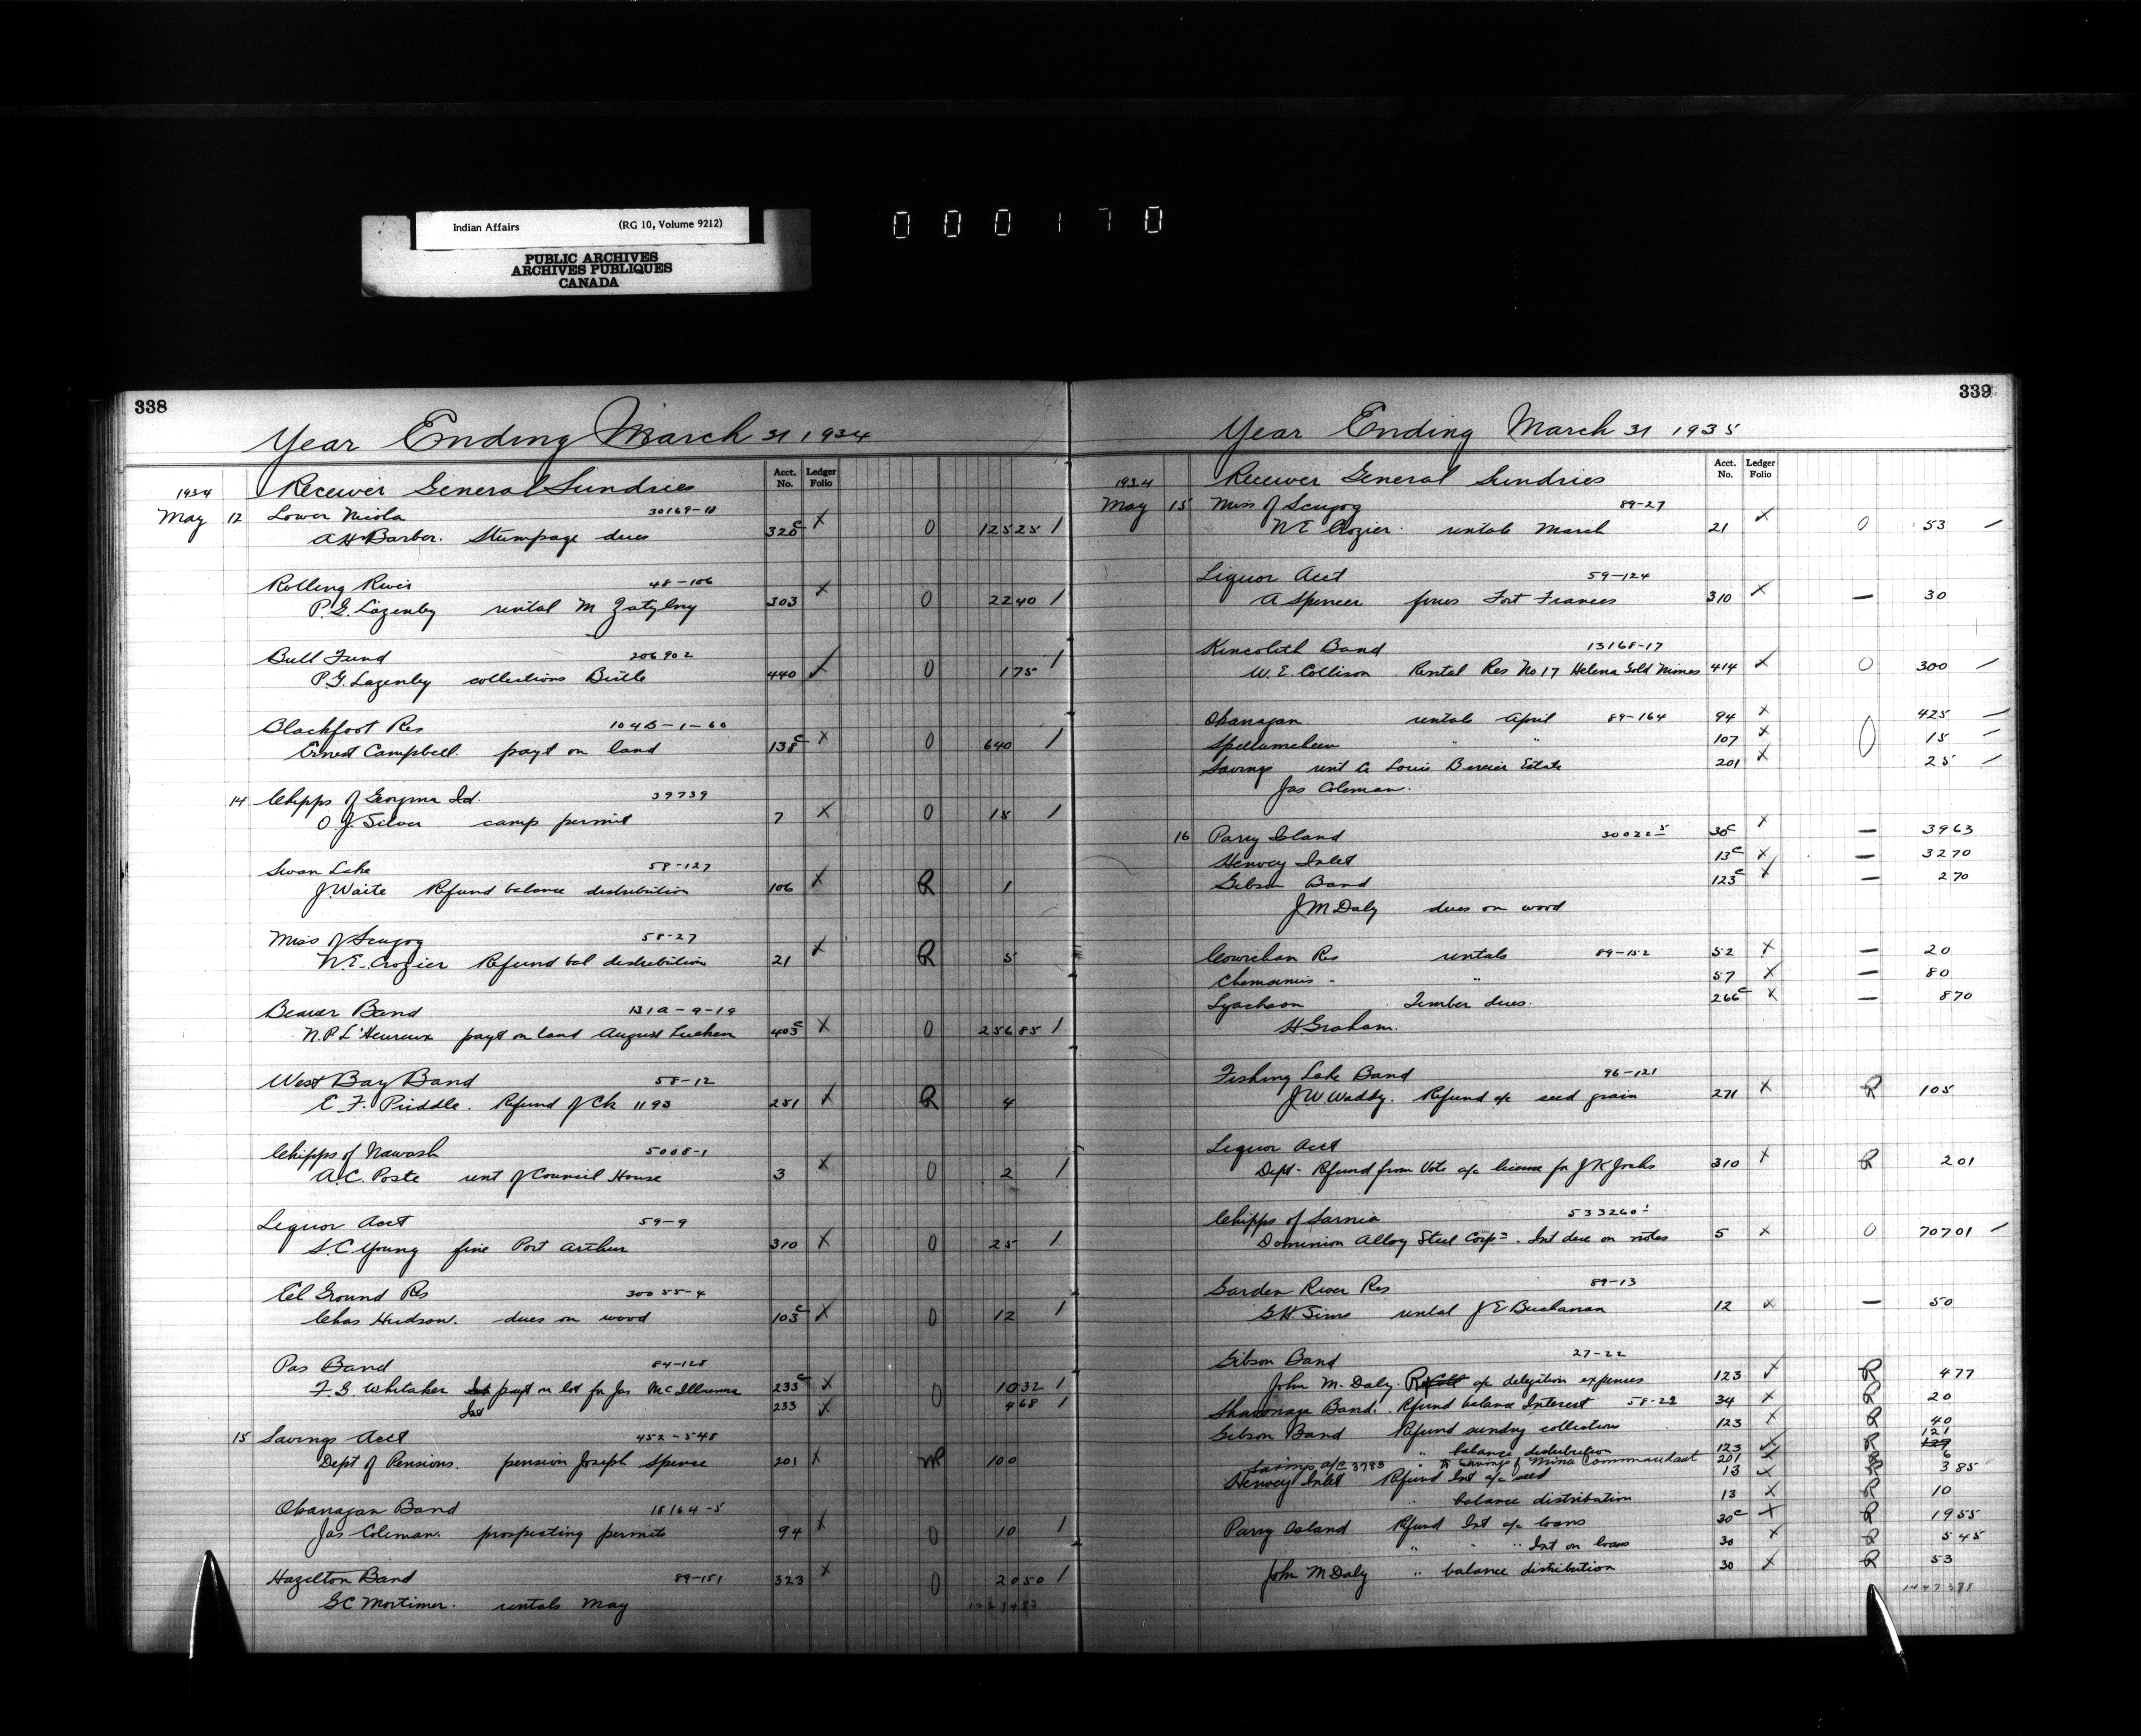 Indian Affairs (RG 10, Volume 9212)
PUBLIC ARCHIVES
ARCHIVES PUBLIQUES
CANADA
000170
338
Year Ending March 31 1934
Acct. No. Ledger Folio
1934 Receiver General Sundries
May 12 Lower Nicola 30169-18
A H Barber. Stumpage dues 320c x 0 125 25 /
Rolling River 48-106
P.G. Lazenby rental M Zatylny 303 x 0 22 40 /
Bull Fund 206902
P.G. Lazenby collections Birtle 440 x 0 1 75 /
Blackfoot Res 104B-1-60
Ernest Campbell. payt on land 138c x 0 640 /
14 Chipps of Georgina Isd. 39739
O. J. Silver camp permit 7 x 0 15 /
Swan Lake 58-127
J Waite Refund balance distribution 106 x R 1
Miss of Scugog 58-27
N.E. Crozier Refund bal distribution 21 x R 5
Beaver Band 131A-9-19
N.P. L'Heureux payt on land August Lueken 403c x 0 256 85 /
West Bay Band 58-12
E. F. Priddle. Refund of Ck 1193 251 x R 4
Chipps of Nawash 5008-1
A.C. Poste rent of Council House 3 x 0 2 /
Liquor Acct 59-9
S.C. Young fine Port Arthur 310 x 0 25 /
Eel Ground Res 30055-4
Chas Hudson. dues on wood 103c x 0 12 /
Pas Band 84-128
F. G. Whitaker Int payt on lot for Jas 235c x 0 10 32 /
Int 233 x 4 68 /
15 Savings Acct 452-548
Dept of Pensions. pension Joseph Spence 201 x 100
Okanagan Band 18164-5
Jas Coleman. prospecting permits 94 x 0 10 /
Hazelton Band 89-151 323 x 0 20 50 /
G C Mortimer. rentals May
339
Year Ending March 31 1935
Acct. No. Ledger Folio
1934 Receiver General Sundries
May 15 Miss of Scugog 89-27
N E Crozier. rentals March 21 x 0 53
Liquor Acct 59-124
A Spencer fines Fort Frances 310 x — 30
Kincolith Band 13168-17
W. E. Collison. Rental Res No 17 Helena Gold Mines 414 x 0 300
Okanagan rentals April 89-164 94 x 0 425
Spellumcheen " " 107 x 15
Savings rent a/c Louis Bercier Estate 201 x 25
Jas Coleman.
16 Parry Island 30022-5 30c x — 39 63
Henvey Inlet 13c x — 32 70
Gibson Band 123c x — 2 70
J M Daly dues on wood
Cowichan Res rentals 89-152 52 x — 20
Chemainus " " 57 x — 80
Lyackson Timber dues. 266c x — 8 70
H. Graham.
Fishing Lake Band 96-121
J W Waddy. Refund a/c seed grain 271 x R 105
Liquor Acct
Dept - Refund from Vote a/c license for J K 310 x R 2 01
Chipps of Sarnia 533260-1
Dominion Alloy Steel Corpn. Int due on notes 5 x 0 707 01
Garden River Res 89-13
G. H. Sims rental J E Buchanan 12 x — 50
Gibson Band 27-22
John M. Daly. a/c delegation expenses 123 x R 4 77
Shawanaga Band. Refund balance Interest 58-22 34 x R 20
Gibson Band Refund sundry collections 123 x R 40
" balance distribution 123 x R 121
Savings a/c 3783 " to Savings of Mina Commandant 201 x R 6
Henvey Inlet Refund Int a/c seed 13 x R 3 85
" balance distribution 13 x R 10
Parry Island Refund Int a/c loans 30c x R 19 55
" " " Int on loans 30 x R 5 45
John M Daly " balance distribution 30 x R 53